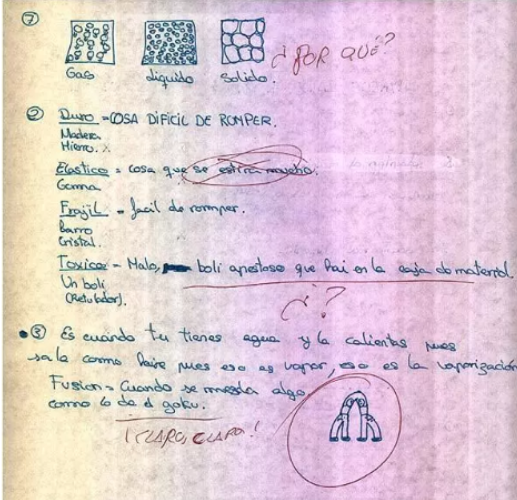 ①
Gas líquido Solido.
¿POR QUÉ?
② Duro = COSA DIFICIL DE ROMPER.
Madera.
Hierro.
Elastico = cosa que se estira mucho.
Goma
Frajil = facil de rommper.
Barro
Cristal.
Toxico = Malo, boli apestoso que hai en la caja do material.
Un boli
(Rotulador).
¿?
③ Es cuándo tu tienes agua y la calientas pues
sale como haire pues eso es vapor, eso es la vaporización
Fusion = Cuando se mezcla algo
como lo de d goku.
¡CLARO, CLARO!